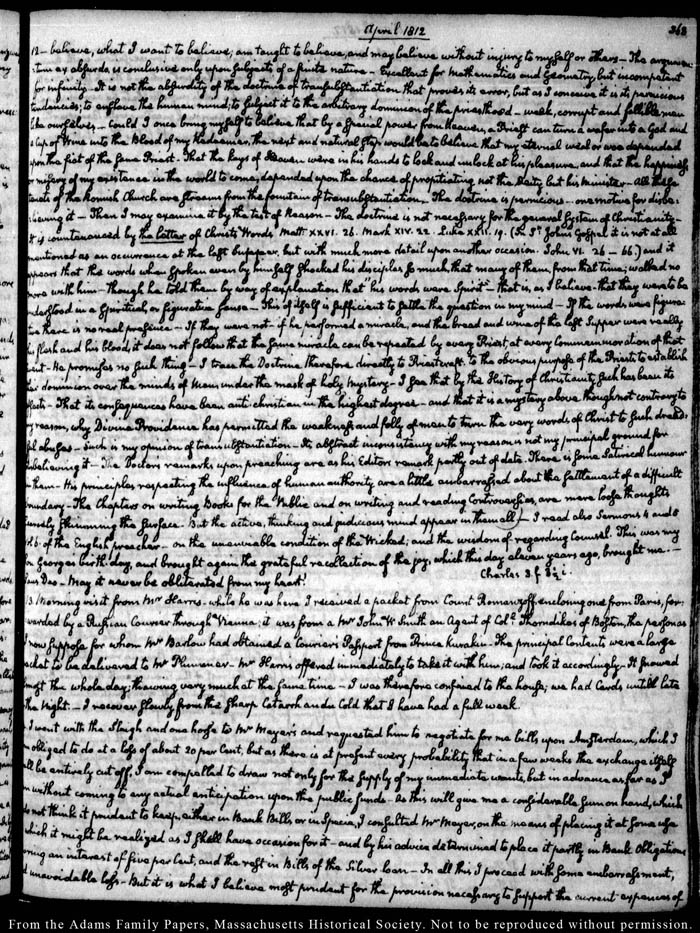 April 1812
362
12 — believe, what I want to believe; am taught to believe, and may believe without injury to myself or others — The argumen-
tum ex absurdo, is conclusive only upon subjects of a finite nature — Excellent for Mathematics and Geometry, but incompetent
for infinity — It is not the absurdity of the doctrine of transubstantiation that proves its error, but as I conceive it is its pernicious
tendencies; to enslave the human mind; to subject it to the arbitrary dominion of the priesthood — weak, corrupt and fallible men
like ourselves — Could I once bring myself to believe that by a special power from Heaven, a Priest can turn a wafer into a God and
a Cup of Wine into the Blood of my Redeemer, the next and natural step would be to believe that my eternal weal or woe depended
upon the fiat of the same Priest — That the keys of Heaven were in his hands to lock and unlock at his pleasure, and that the happiness
or misery of my existence in the world to come, depended upon the chance of propitiating not the Deity but his Minister — All these
tenets of the Romish Church are streams from the fountain of transubstantiation — The doctrine is pernicious — one motive for disbe-
lieving it — Then I may examine it by the test of Reason — The doctrine is not necessary for the general System of Christianity —
It is countenanced by the letter of Christ's Words Matt XXVI. 26. Mark XIV. 22. Luke XXII. 19. (In St. John's Gospel it is not at all
mentioned as an occurrence at the last Supper, but with much more detail upon another occasion. John VI. 26 — 66.) and it
appears that the words when spoken even by himself shocked his disciples so much, that many of them, from that time, walked no
more with him — Though he told them by way of explanation that his words were Spirit — that is, as I believe that they were to be
understood in a spiritual, or figurative sense — This of itself is sufficient to settle the question in my mind — If the words were figura-
tive there is no real presence — If they were not — if he performed a miracle, and the bread and wine of the last Supper were really
his flesh and his blood, it does not follow that the same miracle can be repeated by every Priest at every Commemoration of that
event — He promises no such thing — I trace the Doctrine therefore directly to Priestcraft. to the obvious purpose of the Priest to establish
his dominion over the minds of Men under the mask of holy mystery — I see that by the History of Christianity such has been its
effect — That its consequences have been anti christian in the highest degree — and that it is a mystery above, though not contrary to
my reason, why Divine Providence has permitted the weakness and folly of man to turn the very words of Christ to such dread-
ful abuses — Such is my opinion of transubstantiation — Its abstract inconsistency with my reason is not my principal ground for
disbelieving it — The Doctors remarks upon preaching are as his Editors remark partly out of date. There is some Satirical humour
in them — His principles respecting the influence of human authority are a little embarrassed about the settlement of a difficult
boundary — The Chapters on writing Books for the Public and on writing and reading Controversies, are mere loose thoughts
merely skimming the surface. But the active, thinking and judicious mind appear in them all — I read also Sermons 4 and 5
of the English preacher — on the unenviable condition of the Wicked; and the wisdom of regarding Counsel. This was my
Son George's birth-day, and brought again the grateful recollection of the joy, which this day eleven years ago, brought me. —
Deo — May it never be obliterated from my heart!
Charles
13 Morning visit from Mr Harris — while he was here I received a packet from Count Romanzoff, enclosing one from Paris, for-
warded by a Russian Courier through Vienna; it was from a Mr John W Smith an Agent of Coll. Thorndike's of Boston, the person as
I now suppose for whom Mr Barlow had obtained a Courier's Passport from Prince Kurakin — The principal Contents were a large
packet to be delivered to Mr Plumener — Mr Harris offered immediately to take it with him, and took it accordingly — It snowed
almost the whole day; thawing very much at the same time — I was therefore confined to the house; we had Cards untill late
the Night — I recover slowly from the sharp Catarrh and a Cold that I have had a full week
I went with the Sleigh and one horse to Mr Meyer's and requested him to negotiate for me bills upon Amsterdam, which I
obliged to do at a loss of about 20 per Cent, but as there is at present every probability that in a few weeks the exchange itself
will be entirely cut off, I am compelled to draw not only for the supply of my immediate wants, but in advance as far as I
can without coming to any actual anticipation upon the public funds. As this will give me a considerable sum on hand, which
I do not think it prudent to keep, either in Bank Bills or in Specie, I consulted Mr Meyer, on the means of placing it at some use
which it might be realized as I shall have occasion for it — and by his advice determined to place it partly in Bank Obligations
bearing an interest of five per Cent, and the rest in Bills of the Silver loan — In all this I proceed with some embarrassment,
and unavoidable loss — But it is what I believe most prudent for the provision necessary to support the current expenses of
From the Adams Family Papers, Massachusetts Historical Society. Not to be reproduced without permission.